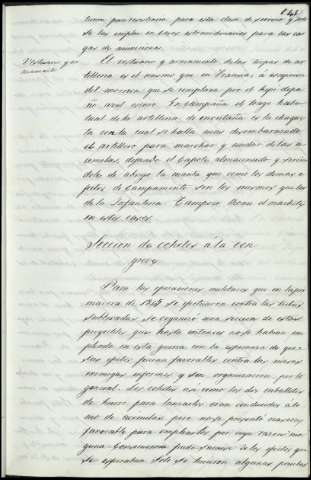 141
para esta clase de servicio y solo
se las emplea en casos extraordinarios para las car
gas de municiones.
Vestuario y ar
mamento
El vestuario y armamento de las tropas de ar
tilleria es el mismo que en Francia, á escepcion
del morrion que se remplaza por el kepi de pa
ño azul oscuro. En campaña el trage habi
tual de la artilleria de montaña es la chaque
ta con la cual se halla mas desembarazado
el artillero para marchar y cuidar de las a
cemilas, dejando el capote almacenado y sirvien
dole de abrigo la manta que como los demas e
fectos de campamento son los mismos que los
de la Infanteria. Tampoco llevan el machete
en estos casos.
Seccion de cohetes á la con
greve
Para las operaciones militares que en la pri
mavera de 18 se hicieron contra las tribus
sublevadas se organizó una seccion de estos
proyectiles que hasta entonces no se habian em
pleado en esta guerra con la esperanza de que
sus efectos fueran favorables contra las masas
enemigas, informes y sin organizacion por lo
general. Los cohetes asi como los dos caballetes
de hierro para lanzarlos eran conducidos á lo
mo de acemilas pero no se presentó ocasion
favorable para emplearlos por cuya razon nin
guna consecuencia pudo sacarse de los efectos que
se esperaban. Solo se hicieron algunas pruebas